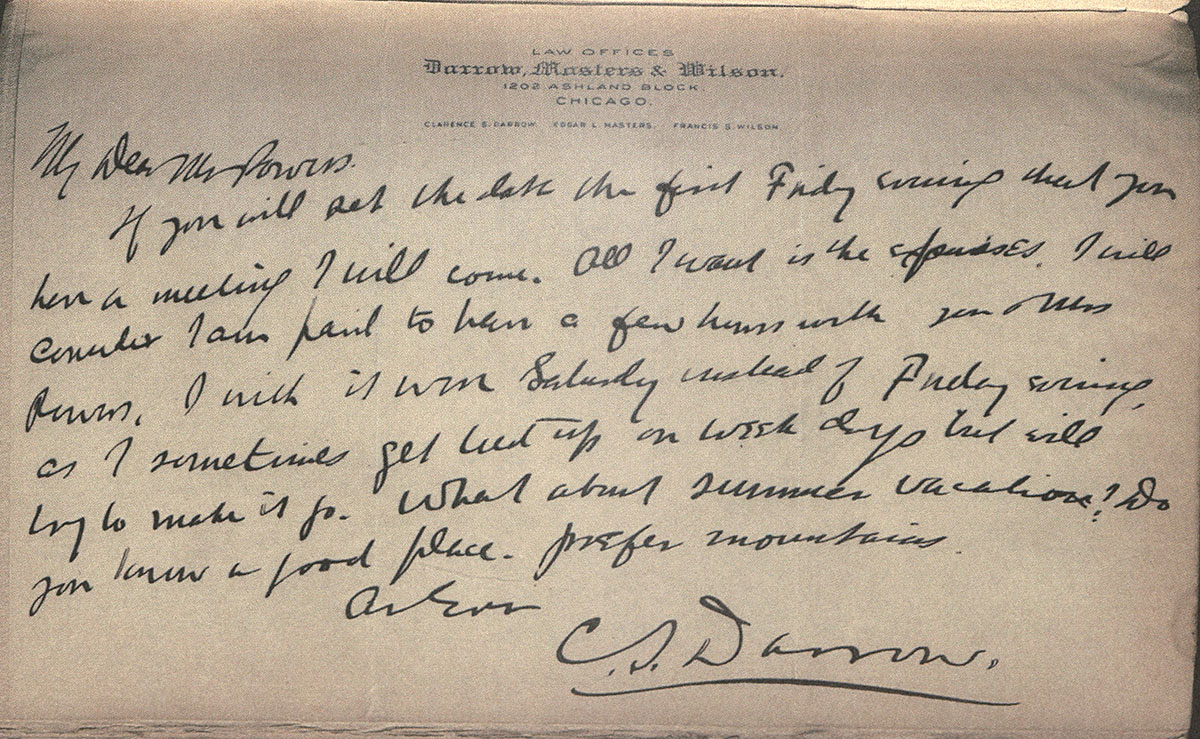 LAW OFFICES
Darrow, Masters & Wilson.
1202 ASHLAND BLOCK.
CHICAGO.
CLARENCE S. DARROW. EDGAR L. MASTERS. FRANCIS S. WILSON
My Dear Mr Powers.
If you will set the date the first Friday evening that you
have a meeting I will come. All I want is the expenses. I will
consider I am paid to have a few hours with you & Mrs
Powers. I wish it were Saturday instead of Friday evening,
as I sometimes get tied up on week days but will
try to make it go. What about summer vacation? Do
you know a good place. prefer mountains.
As Ever
C. S. Darrow.